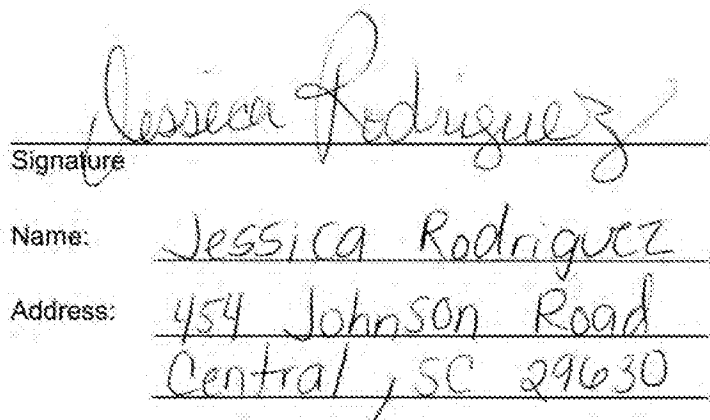 Jessica Rodriguez
Signature
Name: Jessica Rodriguez
Address: 454 Johnson Road
Central, SC 29630